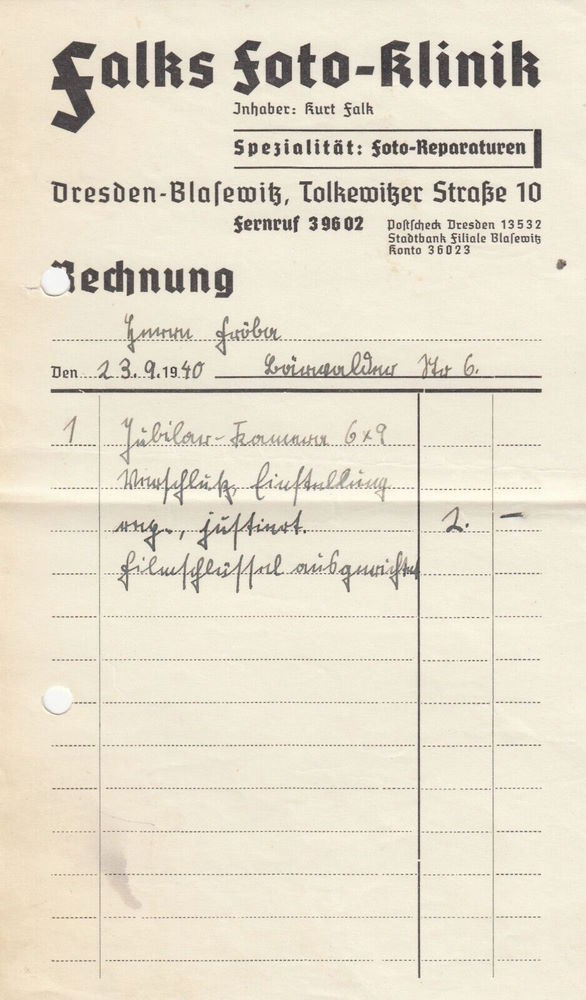 Falks Foto-Klinik
Inhaber: Kurt Falk
Spezialität: Foto-Reparaturen
Dresden-Blasewitz, Tolkewitzer Straße 10
Fernruf 39602
Postscheck Dresden 13532
Stadtbank Filiale Blasewitz
Konto 36023
Rechnung
Herrn Fröba
Den 23.9.1940 Bärwalder Str 6.
1 Jubilar-Kamera 6x9
Verschluß, Einstellung
rep., justiert. 2. –
Filmschlüssel ausgerichtet